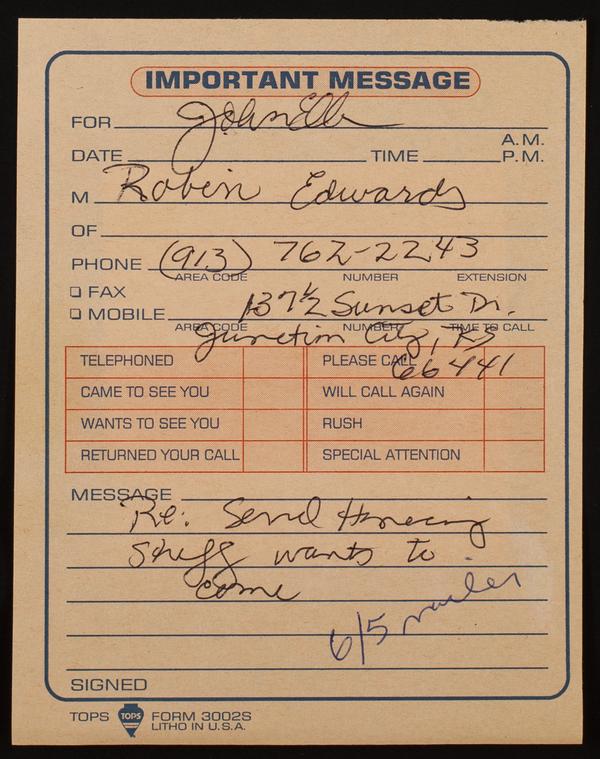 IMPORTANT MESSAGE
FOR John Ellen
A.M.
DATE TIME P.M.
M Robin Edwards
OF
PHONE (913) 762-2243
AREA CODE NUMBER EXTENSION
FAX
MOBILE 137 1/2 Sunset Dr.
AREA CODE NUMBER TIME TO CALL
Junction City, KS
66441
TELEPHONED PLEASE CALL
CAME TO SEE YOU WILL CALL AGAIN
WANTS TO SEE YOU RUSH
RETURNED YOUR CALL SPECIAL ATTENTION
MESSAGE
Re: Send
stuff wants to
come
6/5 mailed
SIGNED
TOPS TOPS FORM 3002S
LITHO IN U.S.A.